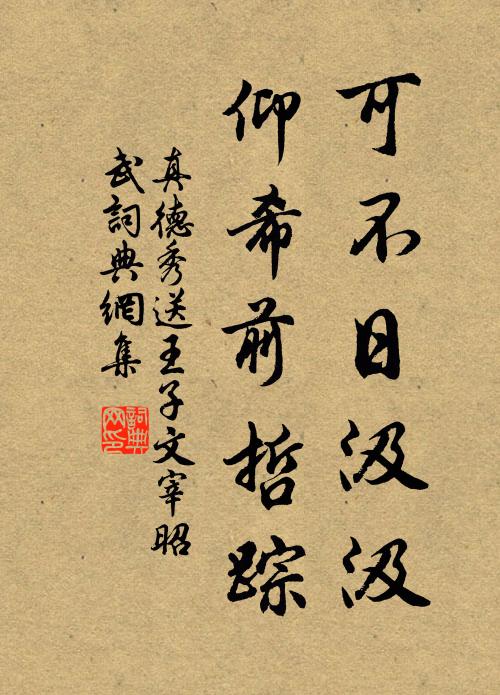 可不日汲汲
仰希前哲踪
真德秀送王子文宰昭
武詞典網集
詞典網印